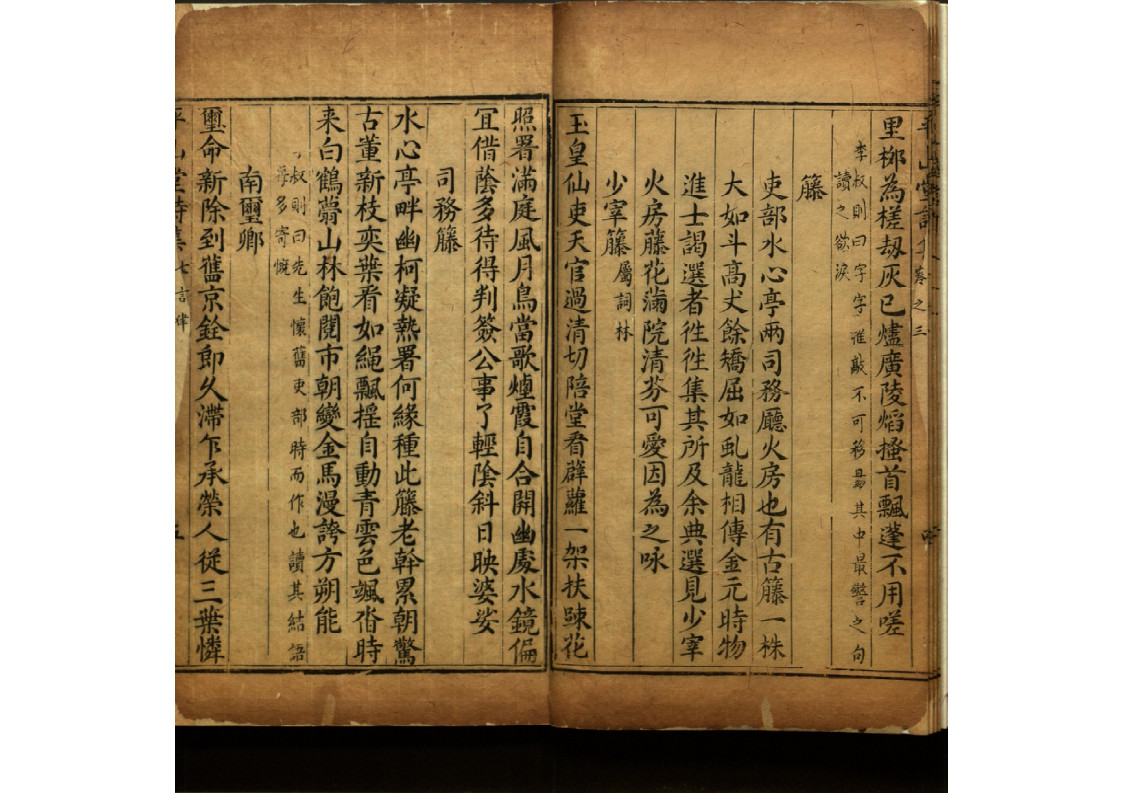 里榔為槎刼灰已爐廣陵焰搔首飄蓬不用嗟
李叔則曰字字推敲不可移易其中最警之句
讀之欲淚
籐
吏部水心亭兩司務廳火房也有古籐一株
大如斗高丈餘矯屈如虬龍相傳金元時物
進士謁選者徃徃集其所及余典選見少宰
火房藤花滿院清芬可愛因為之咏
少宰籐屬詞林
玉皇仙吏天官過清切陪堂看薜蘿一架扶踈花
照署滿庭風月鳥當歌爐霞自合開幽處水鏡偏
宜借蔭多待得判簽公事了輕陰斜日映婆娑
司務籐
水心亭畔幽柯凝熱署何緣種此籐老幹累朝驚
古董新枝奕葉看如繩飄揺自動青雲色颯沓時
来白鶴翯山林飽閱市朝變金馬漫誇方朔能
叔則曰先生懷舊吏部時而作也讀其結語
每多寄慨
南璽卿
璽命新除到舊京銓郎久滯乍承榮人從三葉憐
平山堂詩集七言律 五